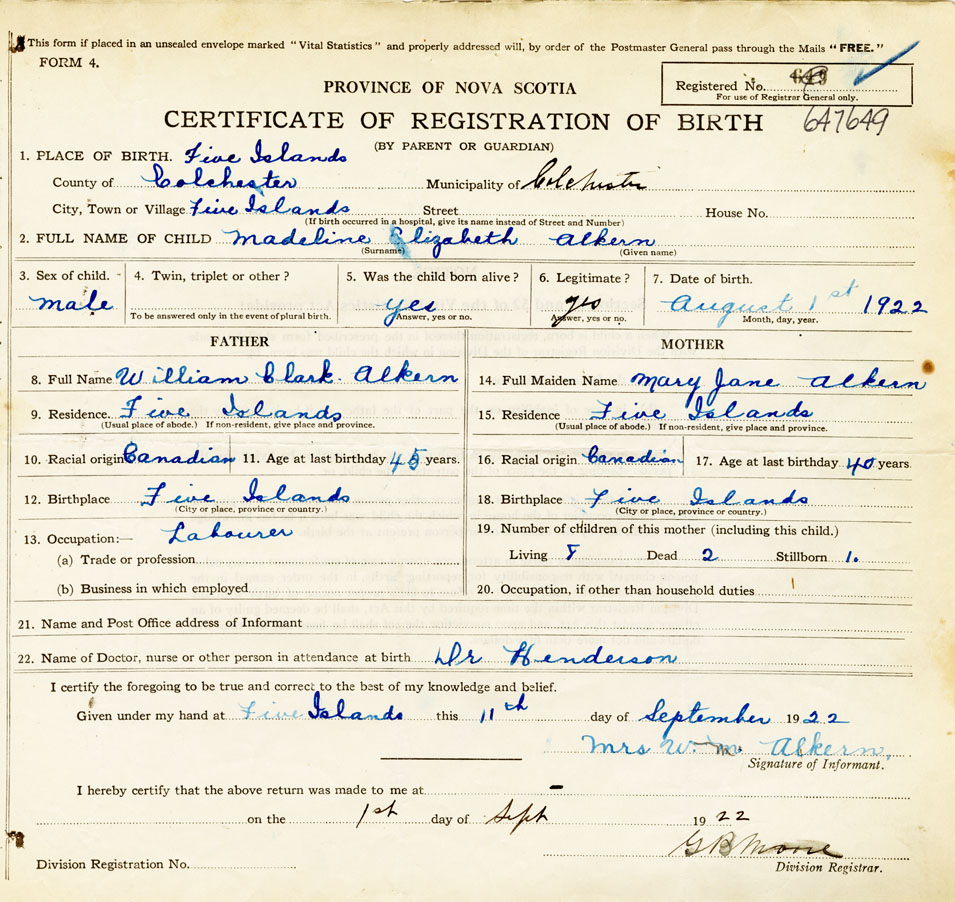 This form if placed in an unsealed envelope marked "Vital Statistics" and properly addressed will, by order of the Postmaster General pass through the Mails "FREE."
FORM 4.
PROVINCE OF NOVA SCOTIA
Registered No.
For use of Registrar General only.
CERTIFICATE OF REGISTRATION OF BIRTH 647649
(BY PARENT OR GUARDIAN)
1. PLACE OF BIRTH. Five Islands
County of Colchester Municipality of Colchester
City, Town or Village Five Islands Street House No.
(If birth occurred in a hospital, give its name instead of Street and Number)
2. FULL NAME OF CHILD Madeline Elizabeth Alkern
(Surname) (Given name)
3. Sex of child. 4. Twin, triplet or other? 5. Was the child born alive? 6. Legitimate? 7. Date of birth.
male yes yes August 1st 1922
To be answered only in the event of plural birth. Answer, yes or no. Answer, yes or no. Month, day, year.
FATHER MOTHER
8. Full Name William Clark. Alkern 14. Full Maiden Name Mary Jane Alkern
9. Residence. Five Islands 15. Residence Five Islands
(Usual place of abode.) If non-resident, give place and province. (Usual place of abode.) If non-resident, give place and province.
10. Racial origin Canadian 11. Age at last birthday 45 years. 16. Racial origin Canadian 17. Age at last birthday 40 years.
12. Birthplace Five Islands 18. Birthplace Five Islands
(City or place, province or country.) (City or place, province or country.)
13. Occupation:— Labourer 19. Number of children of this mother (including this child.)
(a) Trade or profession Living 8 Dead 2 Stillborn 1.
(b) Business in which employed 20. Occupation, if other than household duties
21. Name and Post Office address of Informant
22. Name of Doctor, nurse or other person in attendance at birth Dr Henderson
I certify the foregoing to be true and correct to the best of my knowledge and belief.
Given under my hand at Five Islands this 11th day of September 1922
Mrs W. m. Alkern,
Signature of Informant.
I hereby certify that the above return was made to me at –
on the 1st day of Sept 1922
G B Morse
Division Registration No. Division Registrar.